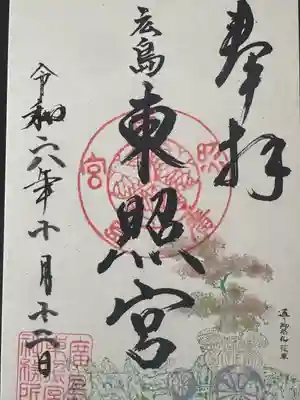 奉拝
広島
東照宮
令和六年十月十二日
廣島
東照宮
社務所